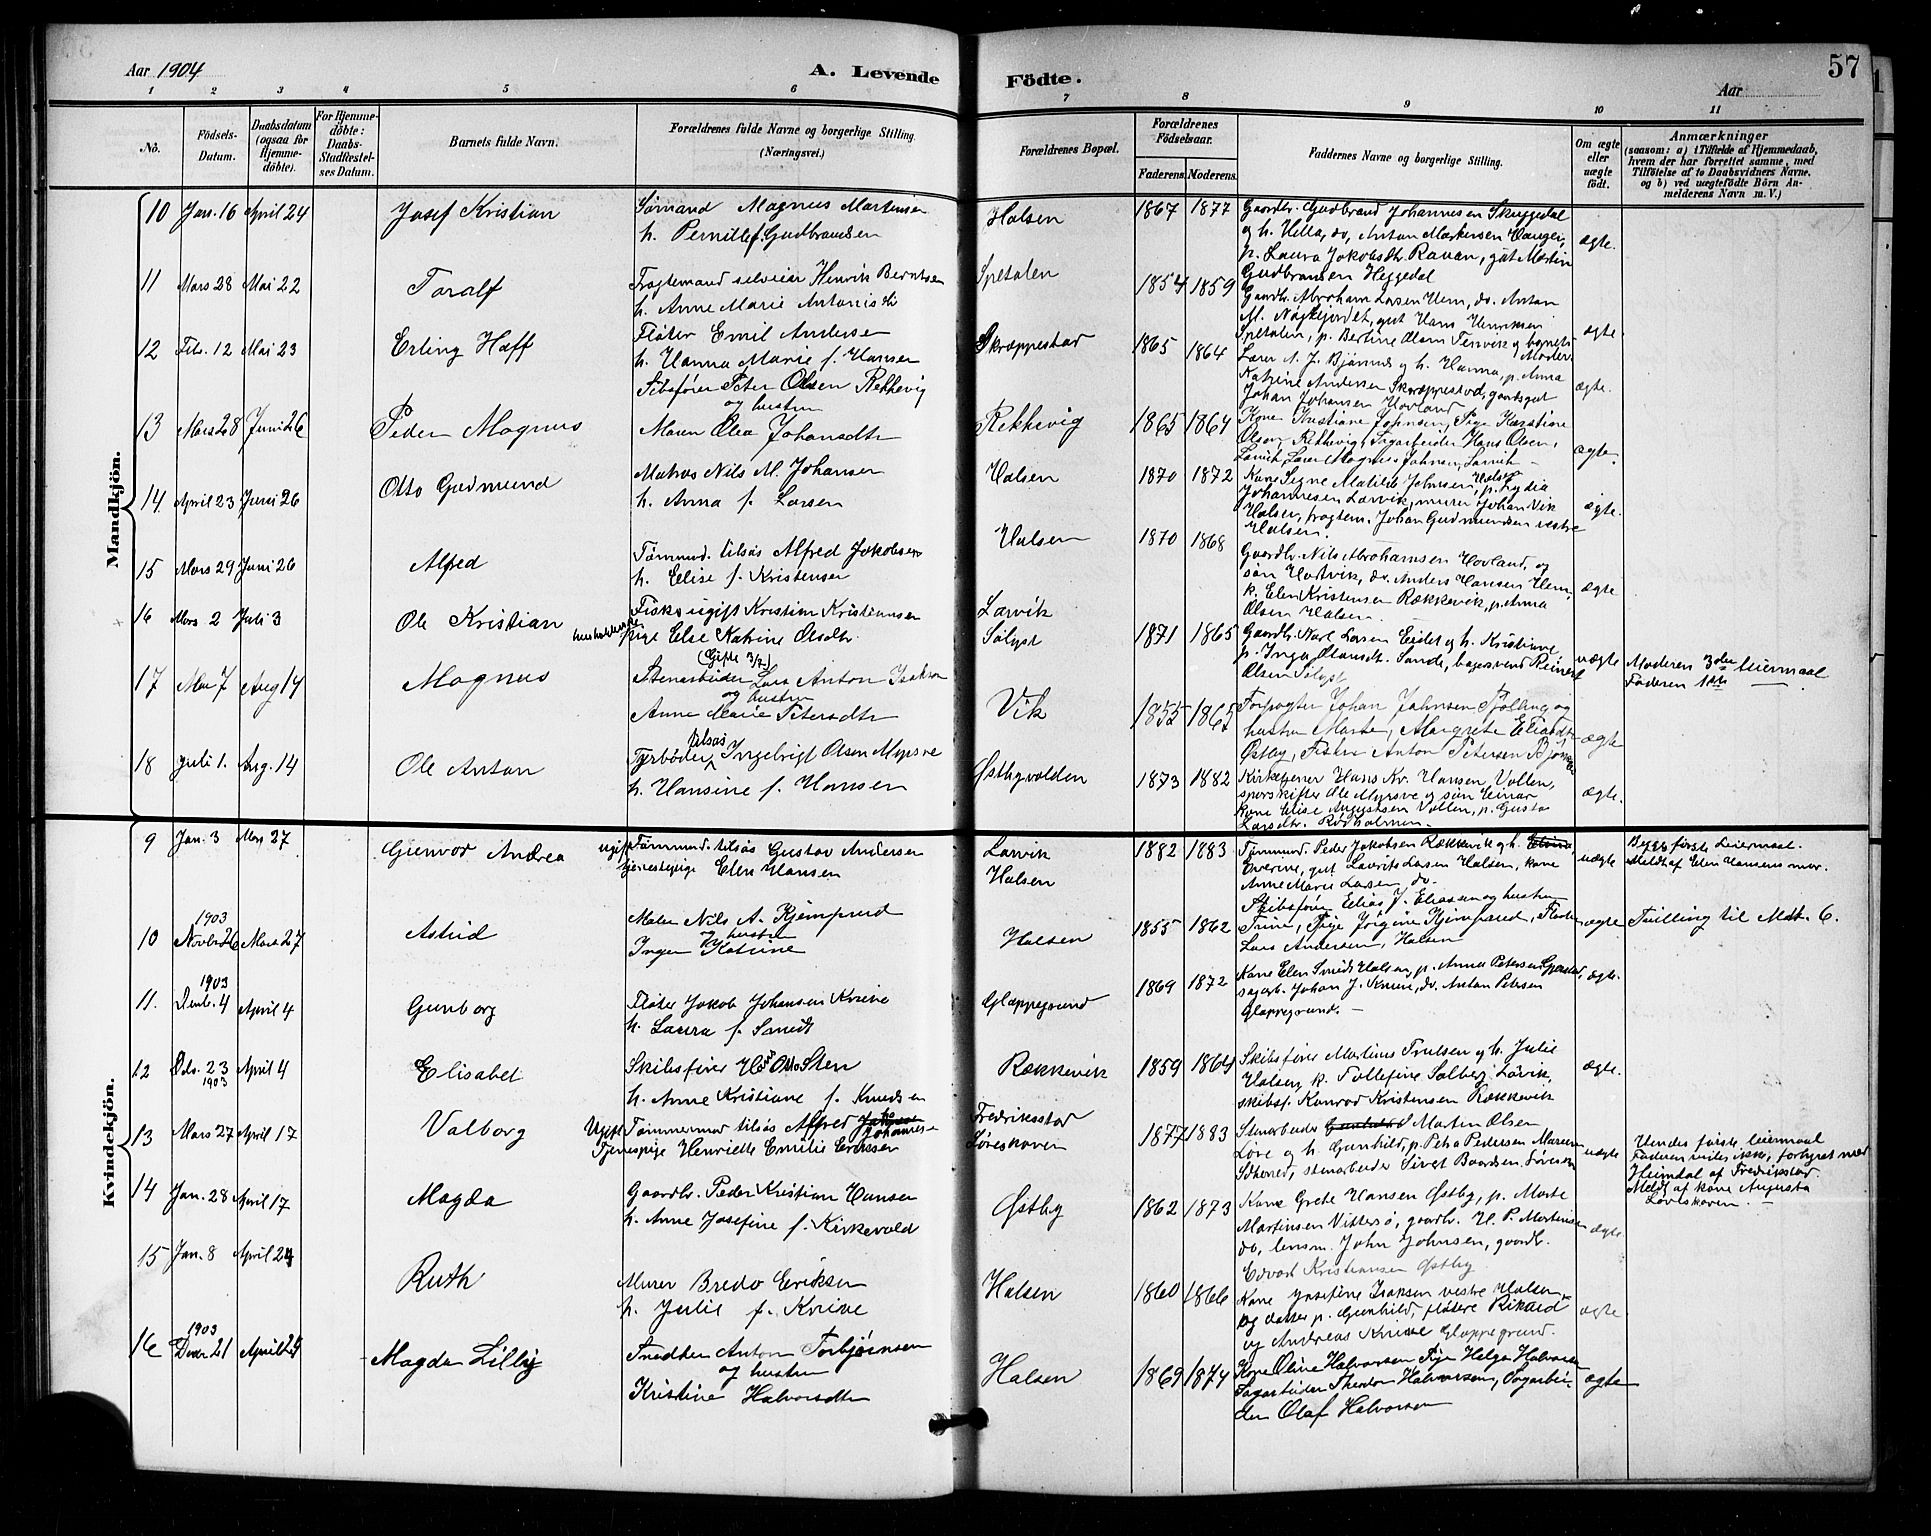 57
Aar 1904
A. Levende
Födte.
Aar
1 2 3 4 5 6 7 8 9 10 11
No.
Födsels-
Datum.
Daabsdatum
(ogsaa for
Hjemme-
döbte).
For Hjemme-
döbte:
Daabs-
Stadfæstel-
ses Datum.
Barnets fulde Navn.
Forældrenes fulde Navne og borgerlige Stilling.
(Næringsvei.)
Forældrenes Bopæl.
Forældrenes
Födselsaar.
Faderens. Moderens.
Faddernes Navne og borgerlige Stilling.
Om ægte
eller
uægte
födt.
Anmærkninger
(saasom: a) i Tilfælde af Hjemmedaab,
hvem der har forrettet samme, med
Tilföielse af to Daabsvidners Navne,
og b) ved uægtefödte Börn An-
melderens Navn m. V.)
Mandkjön.
10 Jan. 16 April 24 Josef Kristian
Sømand Magnus Martensen
h. Pernille f. Gudbrandsen
Halsen 1867 1877
Gaardbr. Gudbrand Johannesen Skuggedal
og h. Hella, do. Anton Markussen
p. Laura Jakobsdtr. Rauan, gut Martin
Gudbransen Heggedal
ægte.
11 Mars 28 Mai 22 Toralf
Fragtemand selveier Henrik Berntsen
h. Anne Marie Antonisdtr
Spetalen 1854 1859
Gaardbr. Abraham Larsen Hem, do. Anton
M. Nøgkjordet, gut Hans Henriksen
Spetalen, p. Bertine Olsen og barnets
Moder.
ægte.
12 Feb. 12 Mai 23 Erling Haff
Fløter Emil Andersen
h. Hanna Marie f. Hansen
Skræppestad 1865 1864
Lærer A. J. Bjønnes og h. Hanna, p. Anna
Katrine Andersen Skræppestad, gaardsgut
Johan Johansen Hovland
ægte.
13 Mars 28 Juni 26 Peder Magnus
Skibsfører Peter Olsen Rekkevig
og hustru
Maren Olea Johansdtr
Rekkevig 1865 1864
Kone Kristiane Johnsen, Pige Karstine
Olsen Rekkevig, Sagarbeider Hans Olsen,
Larvik, Lærer Magnus Johnsen, Larvik
ægte.
14 April 23 Juni 26 Otto Gudmund
Matros Nils M. Johansen
h. Anna f. Larsen
Halsen 1870 1872
Kone Signe Matilde Johnsen, Halsen, p. Lydia
Johannesen Larvik, murer Johan Vik
Halsen, fragtem. Johan Gudmundsen vestre
Halsen.
ægte.
15 Mars 29 Juni 26 Alfred
Tømmmd. tilsøs Alfred Jakobsen
h. Elise f. Kristensen
Halsen 1870 1868
Gaardbr. Nils Abrahamsen Hovland, og
søn Hartvik, do. Anders Hansen Hem,
k. Elen Kristensen Rækkevik, p. Anna
Olsen Halsen.
ægte
16 Mars 2 Juli 3 Ole Kristian
Fisker ugift Kristian Kristiansen
husholderske pige Else Katrine Olsdtr.
(Gifte 3/7)
Larvik
Sølyst 1871 1865
Gaardbr. Karl Larsen Eidet og h. Kristiane
p. Inga Olausdt. Sande, bagersvend Reinert
Olsen Sølyst
uægte
Moderen 3die leiermaal
Faderen 1ste —
17 Mai 7 Aug 14 Magnus
Stenarbeider Lars Anton Isaksen
og hustru
Anne Marie Petersdtr
Vik 1855 1865
Forpagter Johan Johnsen Tjølling og
hustru Marte, Margrete Eliasdtr
Østby, Fisker Anton Petersen
ægte
18 Juli 1. Aug. 14 Ole Anton
Fyrbøder tilsøs Ingebrigt Olsen Myrsve
h. Hansine f. Hansen
Østbyvolden 1873 1882
Kirketjener Hans Kr. Hansen Vollen,
sporskifter Ole Myrsve og søn Einar
kone Elise Augustsen Vollen, p. Gusta
Larsdtr. Rødholmen.
ægte.
Kvindekjön.
9 Jan. 3 Mars 27 Gienvor Andrea
ugift Tømmmd. tilsøs Gustav Andersen
tjenestepige Elen Hansen
Larvik
Halsen 1882 1883
Tømmmd. Peder Jakobsen Rækkevik og h.
Everine, gut Laurits Larsen Halsen, kone
Anne Marie Larsen do.
uægte
Begges første Leiermaal.
Meldt af Elen Hansens mor.
10 1903 Novbr 26 Mars 27 Astrid
Maler Nils A. Kjempsrud
og hustru
Inger Katrine
Halsen 1855 1862
Skibsfører Elias J. Eliassen og hustru
Trine, Pige Jørgine Kjempsrud, Fløder
Lars Andersen, Halsen
ægte
Tvilling til Mdk. 6.
11. 1903 Decbr. 4 April 4 Gunborg
Fløter Jakob Johansen Knive
h. Laura f. Smids
Gloppegrund 1869 1872
Kone Elen Smids Halsen, p. Anna Petersen
sagarb. Johan J. Knive, do. Anton Petersen
Gloppegrund. —
ægte.
12 Dcb. 23 1903 April 4 Elisabet
Skibsfører Hs Otto Sten
h. Anne Kristiane f. Knudsen
Rækkevik 1859 1864
Skibsfører Martinus Trulsen og h. Julie
Halsen, k. Tollefine Solberg Larvik,
skibsf. Konrad Kristensen Rækkevik
ægte.
13 Mars 27 April 17 Valborg
Ugift Tømmermand tilsøs Alfred
Johannesen
Tjenestepige Henriette Emilie Eriksen
Fredriksstad
Løveskoven 1877 1883
Stenarbeider Morten Olsen
Løve og h. Gunhild, p. Petra Pedersen
stenarbeider Sivert Baardsen
uægte
Hendes første leiermaal
Faderen vides ikke, forhyret med
Heimdal af Fredrikstad.
Meldt af kone Augusta
Løveskoven. —
14 Jan. 28 April 17 Magda
Gaardbr. Peder Kristian Hansen
h. Anne Josefine f. Kirkevold
Østby 1862 1873
Kone Grete Hansen Østby, p. Marte
Martinsen Vittersø, gaardbr. H. P. Martinsen
do, lensm. John Johnsen, gaardb.
Edvard Kristiansen Østby
ægte.
15 Jan. 8 April 24 Ruth
Murer Bredo Eriksen
h. Julie f. Knive
Halsen 1860 1866
Kone Josefine Isaksen vestre Halsen
og datter p. Gunhild, fløtere Rikard
og Andreas Knive Gloppegrund.
ægte
16 1903 Decbr 21 April 24 Magda Lilly
Snedker Anton Torbjørnsen
og hustru
Kristine Halvorsdtr
Halsen 1869 1874
Kone Oline Halvorsen, Pige Helga Halvorsen
Sagarbeider Theodor Halvorsen, Sagarbei-
der Olaf Halvorsen
ægte